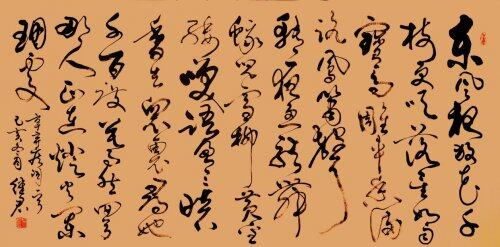 东风夜放花千
树更吹落星如雨
宝马雕车香满
路凤箫声动
一夜鱼龙舞
蛾儿雪柳黄金
缕笑语盈盈暗
香去众里寻他
千百度蓦然回首
那人正在灯火阑
珊处
辛弃疾词一首
冬月